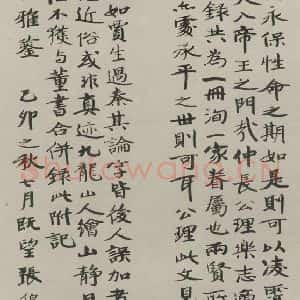 永保性命之期如是則可以凌霄
入帝王之門哉仲長公理樂志
錄共為一冊洵一家眷屬也兩賢所
處承平之世則可耳公理此文見
如賈生過秦其論字皆後人誤加者
近俗或非真迹九龍山人繪山靜日
不獲與董書合併錄此附記
雅鑒 乙卯之秋七月既望張